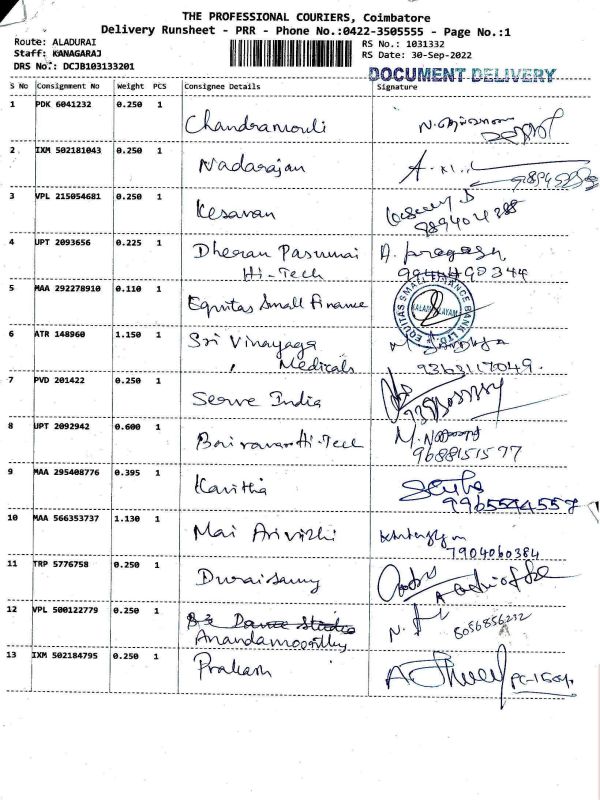 THE PROFESSIONAL COURIERS, Coimbatore
Delivery Runsheet - PRR - Phone No.:0422-3505555 - Page No.:1
Route: ALADURAI
Staff: KANAGARAJ
DRS No.: DCJB103133201
RS No.: 1031332
RS Date: 30-Sep-2022
DOCUMENT DELIVERY
S No Consignment No Weight PCS Consignee Details Signature
1 PDK 6041232 0.250 1 Chandramouli
2 IXM 502181043 0.250 1 Nadarajan
3 VPL 215054681 0.250 1 Kesavan
9894024288
4 UPT 2093656 0.225 1 Dheeran Pasumai
Hi-Tech
5 MAA 292278910 0.110 1 Equitas Small Finance
EQUITAS SMALL FINANCE BANK LTD.
6 ATR 148960 1.150 1 Sri Vinayaga
Medicals 9363117049.
7 PVD 201422 0.250 1 Serve India
8 UPT 2092942 0.600 1 Hi-Tech
9688151577
9 MAA 295408776 0.395 1 Kavitha
9965544557
10 MAA 566353737 1.130 1 Mai Arivizhi
7904060384
11 TRP 5776758 0.250 1 Duraisamy
12 VPL 500122779 0.250 1 Dance Studio
Anandamoorthy 8056856232
13 IXM 502184795 0.250 1 Prakash